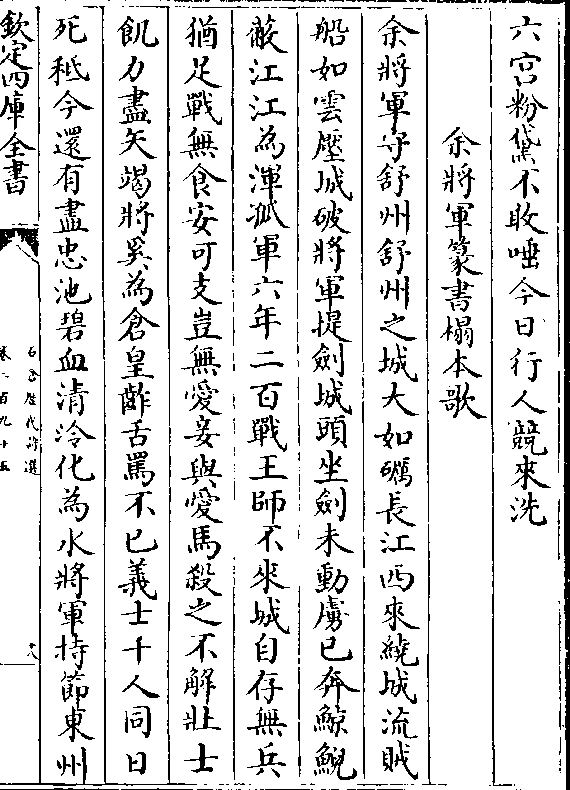 六宮粉黛不敢唾今日行人競來洗
余將軍篆書榻本歌
余將軍守舒州舒州之城大如礪長江西來繞城流賊
船如雲壓城破將軍提劍城頭坐劍未動虜已奔鯨鯢
蔽江江為渾孤軍六年二百戰王師不來城自存無兵
猶足戰無食安可支豈無愛妾與愛馬殺之不解壯士
飢力盡矢竭將奚為倉皇齚舌罵不已義士千人同日
死秪今還有盡忠池碧血清泠化為水將軍持節東州
欽定四庫全書
石倉歷代詩選
卷二百九十五
十八